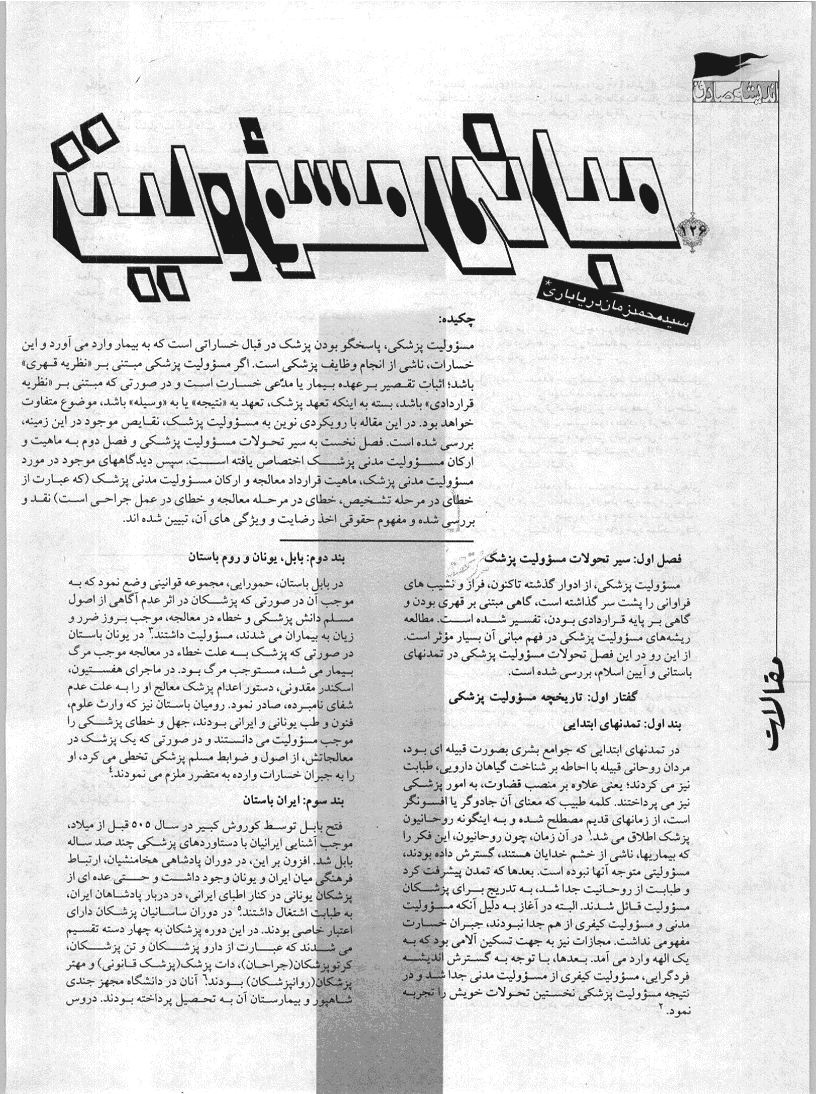 اندیشه صادق
مبانی مسؤولیت
۱۲۶
سیدمحمدزمان دریاباری*
چکیده:
مسؤولیت پزشکی، پاسخگو بودن پزشک در قبال خساراتی است که به بیمار وارد می آورد و این
خسارات، ناشی از انجام وظایف پزشکی است. اگر مسؤولیت پزشکی مبتنی بر «نظریه قهری»
باشد؛ اثبات تقصیر برعهده بیمار یا مدّعی خسارت است و در صورتی که مبتنی بر «نظریه
قراردادی» باشد، بسته به اینکه تعهد پزشک، تعهد به «نتیجه» یا به «وسیله» باشد، موضوع متفاوت
خواهد بود. در این مقاله با رویکردی نوین به مسؤولیت پزشک، نقایص موجود در این زمینه،
بررسی شده است. فصل نخست به سیر تحولات مسؤولیت پزشکی و فصل دوم به ماهیت و
ارکان مسؤولیت مدنی پزشک اختصاص یافته است. سپس دیدگاههای موجود در مورد
مسؤولیت مدنی پزشک، ماهیت قرارداد معالجه و ارکان مسؤولیت مدنی پزشک (که عبارت از
خطای در مرحله تشخیص، خطای در مرحله معالجه و خطای در عمل جراحی است) نقد و
بررسی شده و مفهوم حقوقی اخذ رضایت و ویژگی های آن، تبیین شده اند.
فصل اول: سیر تحولات مسؤولیت پزشک
مسؤولیت پزشکی، از ادوار گذشته تاکنون، فراز و نشیب های
فراوانی را پشت سر گذاشته است، گاهی مبتنی بر قهری بودن و
گاهی بر پایه قراردادی بودن، تفسیر شده است. مطالعه
ریشه‌های مسؤولیت پزشکی در فهم مبانی آن بسیار مؤثر است.
از این رو در این فصل تحولات مسؤولیت پزشکی در تمدنهای
باستانی و آیین اسلام، بررسی شده است.
گفتار اول: تاریخچه مسؤولیت پزشکی
بند اول: تمدنهای ابتدایی
در تمدنهای ابتدایی که جوامع بشری بصورت قبیله ای بود،
مردان روحانی قبیله با احاطه بر شناخت گیاهان دارویی، طبابت
نیز می کردند؛ یعنی علاوه بر منصب قضاوت، به امور پزشکی
نیز می پرداختند. کلمه طبیب که معنای آن جادوگر یا افسونگر
است، از زمانهای قدیم مصطلح شده و به اینگونه روحانیون
پزشک اطلاق می شد.۱ در آن زمان، چون روحانیون، این فکر را
که بیماریها، ناشی از خشم خدایان هستند، گسترش داده بودند،
مسؤولیتی متوجه آنها نبوده است. بعدها که تمدن پیشرفت کرد
و طبابت از روحانیت جدا شد، به تدریج برای پزشکان
مسؤولیت قائل شدند. البته در آغاز به دلیل آنکه مسؤولیت
مدنی و مسؤولیت کیفری از هم جدا نبودند، جبران خسارت
مفهومی نداشت. مجازات نیز به جهت تسکین آلامی بود که به
یک الهه وارد می آمد. بعدها، با توجه به گسترش اندیشه
فردگرایی، مسؤولیت کیفری از مسؤولیت مدنی جدا شد و در
نتیجه مسؤولیت پزشکی نخستین تحولات خویش را تجربه
نمود.۲
بند دوم: بابل، یونان و روم باستان
در بابل باستان، حمورابی، مجموعه قوانینی وضع نمود که به
موجب آن در صورتی که پزشکان در اثر عدم آگاهی از اصول
مسلم دانش پزشکی و خطاء در معالجه، موجب بروز ضرر و
زیان به بیماران می شدند، مسؤولیت داشتند.۳ در یونان باستان
در صورتی که پزشک به علت خطاء در معالجه موجب مرگ
بیمار می شد، مستوجب مرگ بود. در ماجرای هفستیون،
اسکندر مقدونی، دستور اعدام پزشک معالج او را به علت عدم
شفای نامبرده، صادر نمود. رومیان باستان نیز که وارث علوم،
فنون و طب یونانی و ایرانی بودند، جهل و خطای پزشکی را
موجب مسؤولیت می دانستند و در صورتی که یک پزشک در
معالجاتش، از اصول و ضوابط مسلم پزشکی تخطی می کرد، او
را به جبران خسارات وارده به متضرر ملزم می نمودند.۴
بند سوم: ایران باستان
فتح بابل توسط کوروش کبیر در سال ۵۰۵ قبل از میلاد،
موجب آشنایی ایرانیان با دستاوردهای پزشکی چند صد ساله
بابل شد. افزون بر این، در دوران پادشاهی هخامنشیان، ارتباط
فرهنگی میان ایران و یونان وجود داشت و حتی عده ای از
پزشکان یونانی در کنار اطبای ایرانی، در دربار پادشاهان ایران،
به طبابت اشتغال داشتند.۵ در دوران ساسانیان پزشکان دارای
اعتبار خاصی بودند. در این دوره پزشکان به چهار دسته تقسیم
می شدند که عبارت از دارو پزشکان و تن پزشکان،
کرتوپزشکان(جراحان)، دات پزشک(پزشک قانونی) و مهتر
پزشکان(روانپزشکان) بودند.۶ آنان در دانشگاه مجهز جندی
شاهپور و بیمارستان آن به تحصیل پرداخته بودند. دروس
مقالات